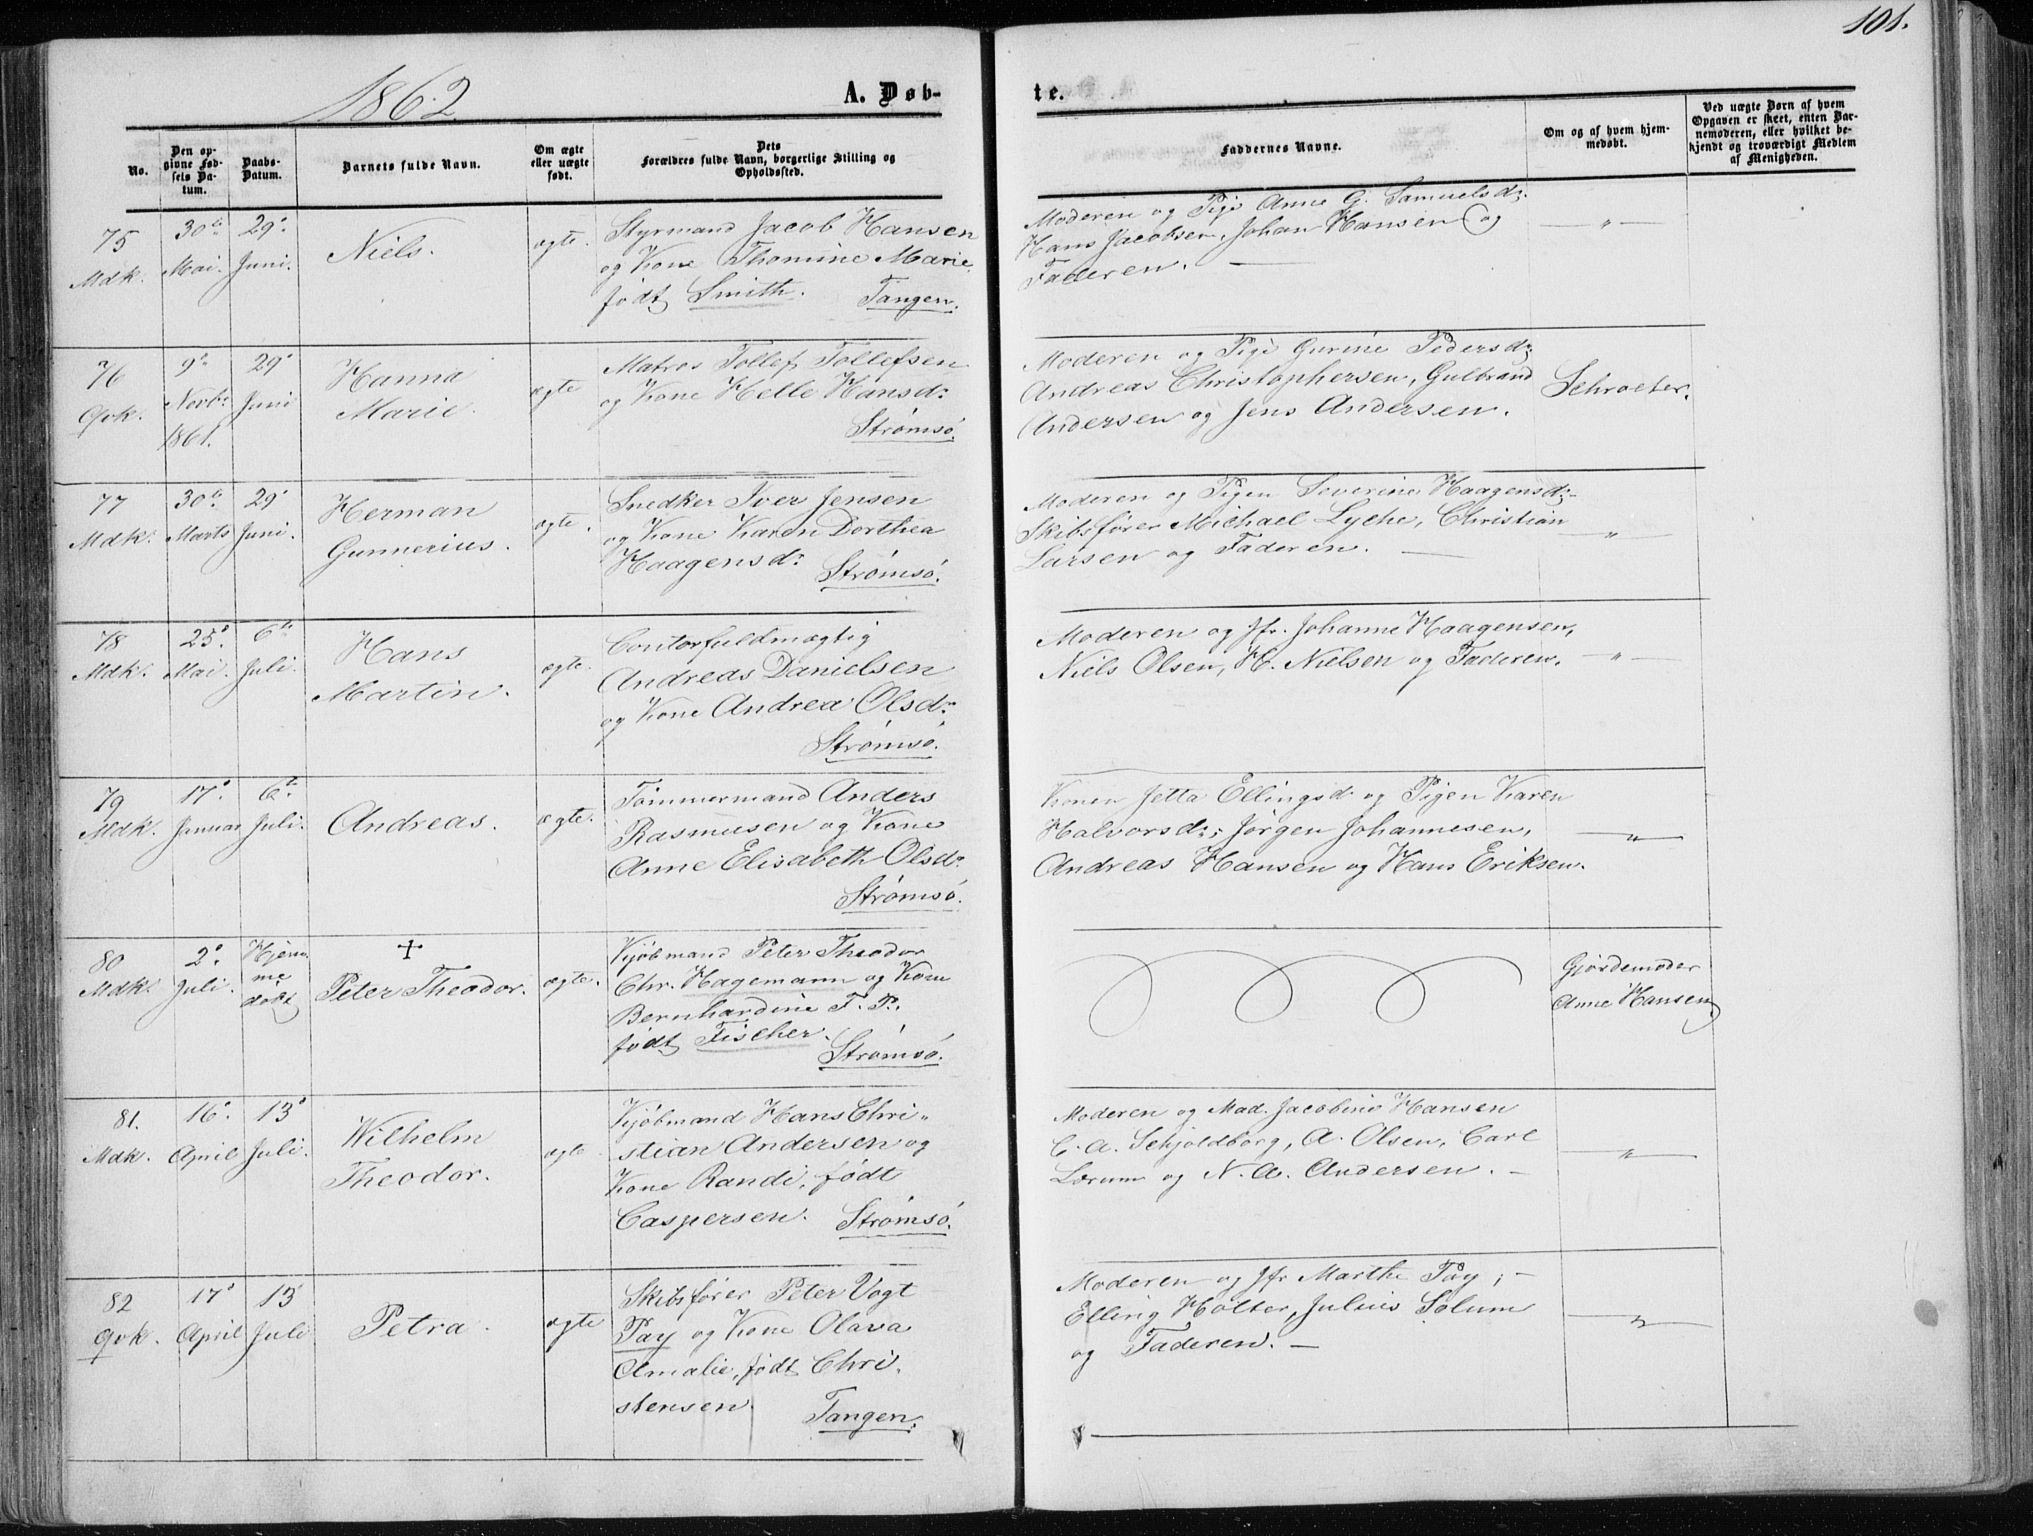 101.
1862
A. Døb-
te.
No.
Den op-
givne Fød-
sels Da-
tum.
Daabs-
Datum.
Barnets fulde Navn.
Om ægte
eller uægte
født.
Dets
Forældres fulde Navn, borgerlige Stilling og
Opholdssted.
Faddernes Navne.
Om og af hvem hjem-
medøbt.
Ved uægte Børn af hvem
Opgaven er skeet, enten Bar-
nemoderen, eller hvilket be-
kjendt og troværdigt Medlem
af Menigheden.
75
Mdk.
30te
Mai.
29.
Juni.
Niels.
ægte.
Styrmand Jacob Hansen
og Kone Thomine Marie
født Smith. Tangen.
Moderen og Pige Anne G. Samuelsd:
Hans Jacobsen, Johan Hansen og
Faderen. —
— „ —
76
Qvk.
9de
Novbr
1861.
29
Juni
Hanna
Marie.
ægte
Matros Tollef Tollefsen
og Kone Helle Hansd:
Strømsø.
Moderen og Pige Gurine Pedersd:
Andreas Christophersen, Gulbrand
Andersen og Jens Andersen.
Schroeter.
77
Mdk.
30te
Marts
29
Juni.
Herman
Gunnerius.
ægte.
Snedker Iver Jensen
og Kone Karen Dorthea
Haagensd: Strømsø.
Moderen og Pigen Severine Haagensd:
Skibsfører Michael Lyche, Christian
Larsen og Faderen. —
— „ —
78
Mdk.
25.
Mai.
6te
Juli.
Hans
Martin.
ægte.
Contorfuldmægtig
Andreas Danielsen
og Kone Andrea Olsd:
Strømsø.
Moderen og Jfr. Johanne Haagensen,
Niels Olsen, H. Nielsen og Faderen.
— „ —
79
Mdk.
17.
Januar
6te
Juli.
Andreas.
ægte.
Tømmermand Anders
Rasmusen og Kone
Anne Elisabeth Olsd:
Strømsø.
Konen Jetta Ellingsd. og Pigen Karen
Halvorsd:, Jørgen Johannesen,
Andreas Hansen og Hans Eriksen.
— „ —
80
Mdk.
2.
Juli.
Hjem-
me
døbt
+
Peter Theodor.
ægte.
Kjøbmand Peter Theodor
Chr. Hagemann og Kone
Bernhardine F. P.
født Fischer.
Strømsø.
Gjordemoder
Anne Hansen
81.
Mdk.
16.
April
13
Juli.
Wilhelm
Theodor.
ægte.
Kjøbmand Hans Chri-
stian Andersen og
Kone Randi, født
Caspersen. Strømsø.
Moderen og Mad. Jacobine Hansen
C. A. Schjoldborg, A. Olsen, Carl
Lærum og N. A. Andersen. —
— „ —
82
Qvk.
17
April
13
Juli
Petra.
ægte
Skibsfører Peter Vogt
Pay og Kone Olava
Amalie, født Chri-
stensen.
Tangen.
Moderen og Jfr Marthe Pay; —
Elling Holter, Julius Solum
og Faderen. —
— „ —